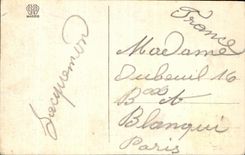 France
Madame
Dubeuil 16
Bd A
Blanqui
Paris
Jacquemin